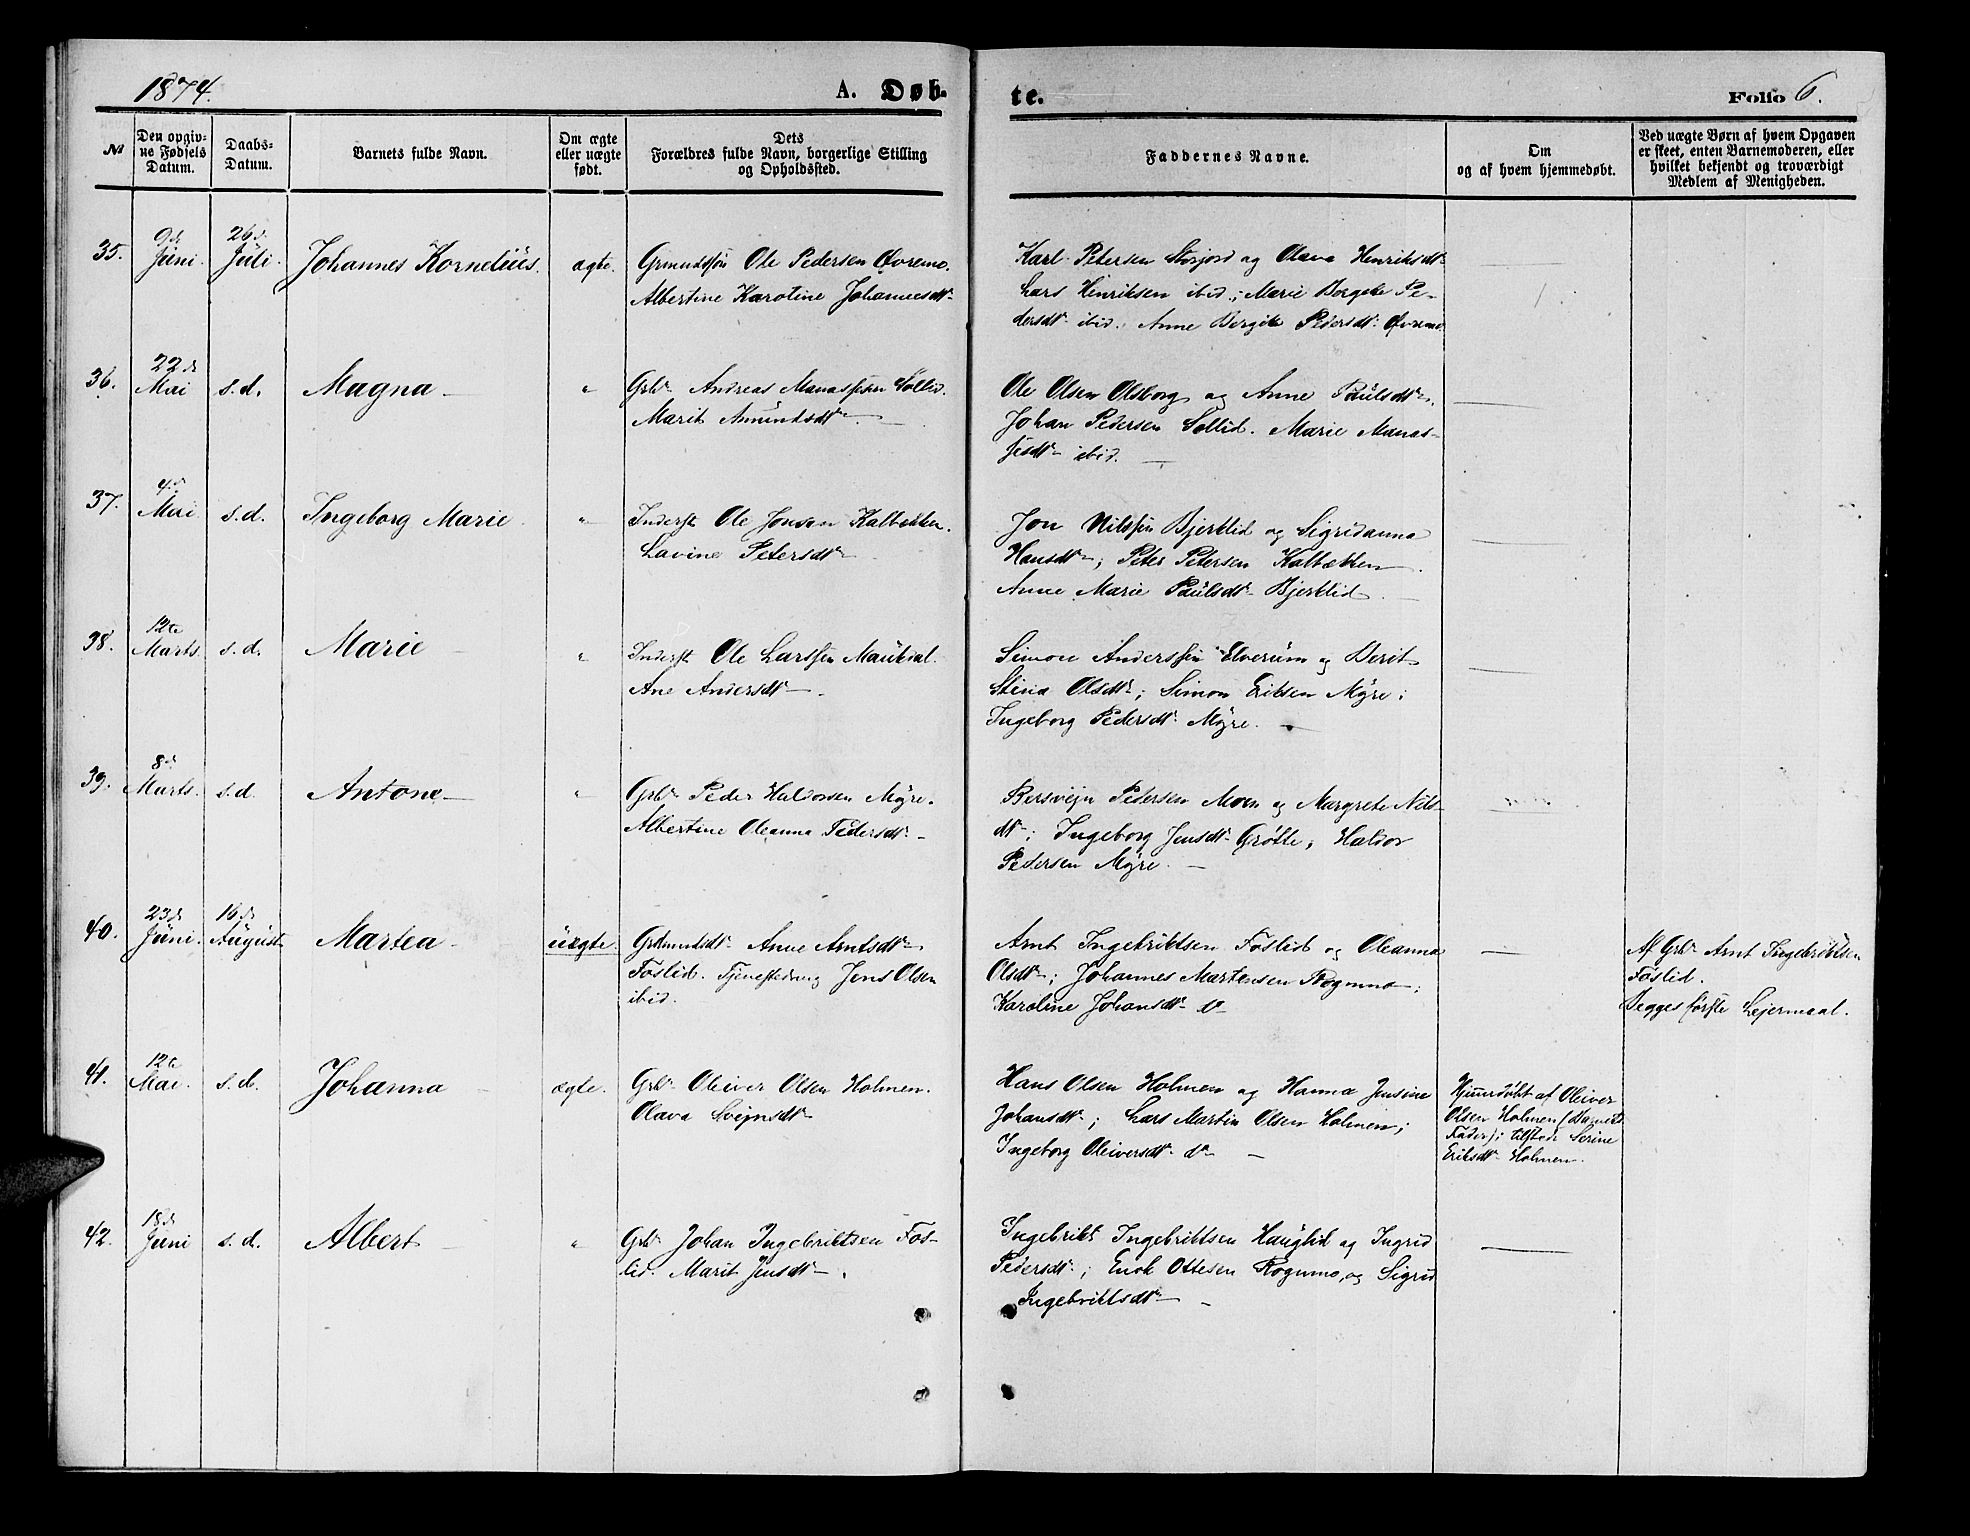 1874.
A. Døb-
te.
Folio 6.
№
Den opgiv-
ne Fødsels
Datum.
Daabs-
Datum.
Barnets fulde Navn.
Om ægte
eller uægte
født.
Dets
Forældres fulde Navn, borgerlige Stilling
og Opholdssted.
Faddernes Navne.
Om
og af hvem hjemmedøbt.
Ved uægte Børn af hvem Opgaven
er skeet, enten Barnemoderen, eller
hvilket bekjendt og troværdigt
Medlem af Menigheden.
35.
9d
Juni.
26d
Juli.
Johannes Kornelius.
ægte.
Grmundssøn Ole Pedersen Øvremo.
Albertine Karoline Johannesdtr
Karl Petersen Storjord og Olava Henriksdtr
Lars Henriksen ibid.; Marie Bergete Pe-
dersdtr ibid. Anne Bergite Pedersdtr Øvremo.
36.
22d
Mai
s.d.
Magna
"
Grbr Andreas Manassesen Sollid.
Marit Amundsdtr
Ole Olsen Olsborg og Anne Paulsdtr.
Johan Pedersen Sollid. Marie Manas-
sesdtr ibid.
37.
4d
Mai
s.d.
Ingeborg Marie
"
Inderst Ole Jonsen Kalbækken.
Lavine Petersdtr
Jon Nilssen Bjerklid og Sigridanna
Hansdtr; Peter Petersen Kalbækken
Anne Marie Paulsdtr Bjerklid
38.
12te
Marts.
s.d.
Marie
"
Inderst Ole Larssen Maukdal.
Ane Andersdtr
Simon Anderssen Elverum og Berit
Stina Olsdtr; Simon Eriksen Myre;
Ingeborg Pedersdtr Myre.
39.
8d
Marts.
s.d.
Antone
"
Grbr Peder Haldorsen Myre.
Albertine Oleanna Pedersdtr
Bersvejn Pedersen Moen og Margrete Nils-
dtr; Ingeborg Jensdtr Grøtte; Haldor
Pedersen Myre.
40.
23d
Juni.
16d
August
Martea
uægte.
Grdmundsdtr Anne Arntsdtr
Foslid. Tjenestedreng Jens Olsen
ibid.
Arnt Ingebriktsen Foslid og Oleanna
Olsdtr; Johannes Martensen Rognmo;
Karoline Johansdtr do
Af Grbr Arnt Ingebriktsen
Foslid.
Begges første Lejermaal.
41.
12te
Mai.
s.d.
Johanna
ægte.
Grbr Oleiver Olsen Holmen.
Olava Svejnsdtr
Hans Olsen Holmen og Hanna Jensine
Johansdtr; Lars Martin Olsen Holmen;
Ingeborg Oleiversdtr do
Hjemmedøbt af Oleiver
Olsen Holmen (Barnets
Fader); tilstede Serine
Eriksdtr Holmen.
42.
18d
Juni
s.d.
Albert
"
Grbr Johan Ingebriktsen Fos-
lid. Marit Jensdtr
Ingebrikt Ingebriktsen Hauglid og Ingrid
Pedersdtr; Enok Ottesen Rognmo, og Sigrid
Ingebriktsdtr